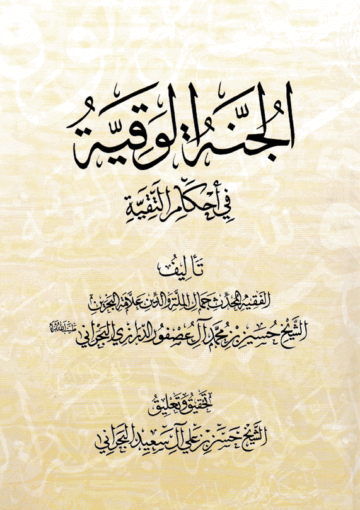 الجُنَّةُ الوَقِيَّةُ
فِي أَحْكَامِ التَّقِيَّةِ
تأليفُ
الفقيه المحدث جمال الملة والدين علامة البحرين
الشيخ حسين بن محمد آل عصفور الدرازي البحراني
تحقيق وتعليق
الشيخ حسن بن علي آل سعيد البحراني